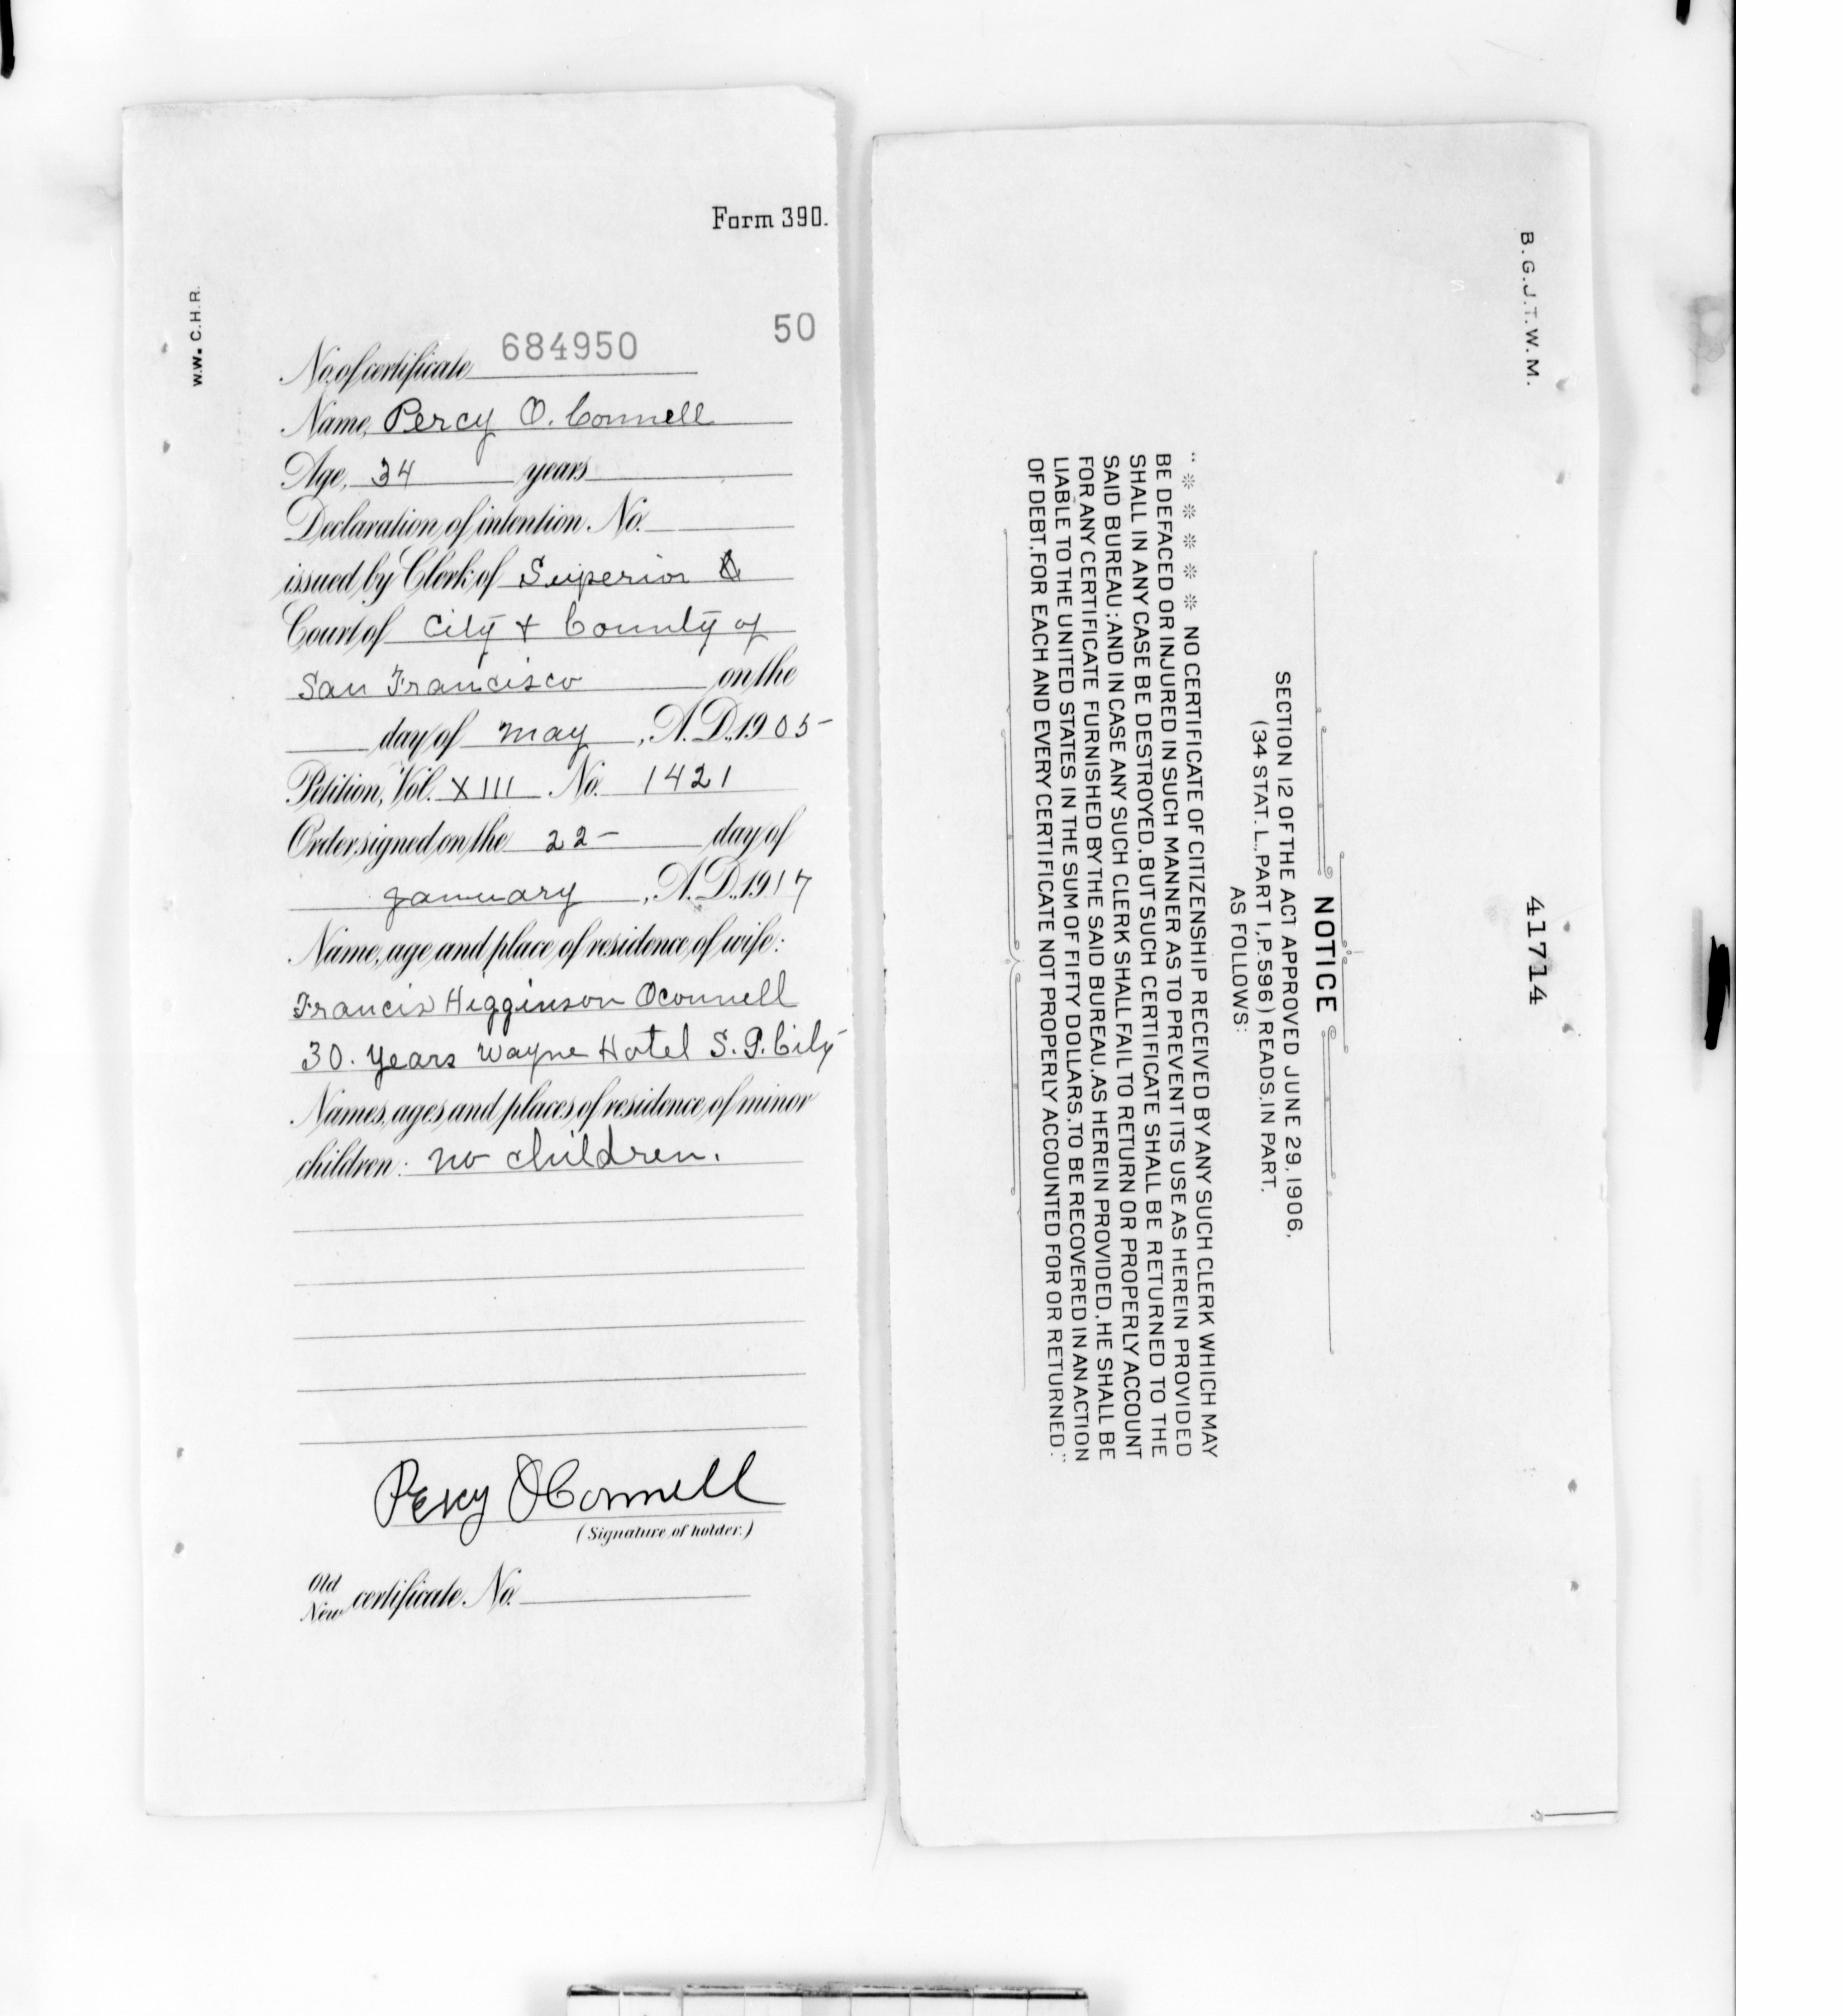 Form 390.
W.W. C.H.R.
50
No. of certificate 684950
Name, Percy O. Connell
Age, 34 years
Declaration of intention, No.
issued by Clerk of Superior
Court of City + County of
San Francisco on the
day of May, A.D., 1905-
Petition, Vol. XIII No. 1421
Order signed on the 22- day of
January, A.D., 1917
Name, age and place of residence of wife:
Francis Higginson Oconnell
30. Years Wayne Hotel S. P. City
Names, ages and places of residence of minor
children: no children.
Percy OConnell
(Signature of holder.)
Old
New certificate No.
B.G.J.T.W.M.
41714
NOTICE
SECTION 12 OF THE ACT APPROVED JUNE 29, 1906,
(34 STAT. L., PART I, P. 596) READS, IN PART,
AS FOLLOWS:
"* * * * * NO CERTIFICATE OF CITIZENSHIP RECEIVED BY ANY SUCH CLERK WHICH MAY
BE DEFACED OR INJURED IN SUCH MANNER AS TO PREVENT ITS USE AS HEREIN PROVIDED
SHALL IN ANY CASE BE DESTROYED, BUT SUCH CERTIFICATE SHALL BE RETURNED TO THE
SAID BUREAU; AND IN CASE ANY SUCH CLERK SHALL FAIL TO RETURN OR PROPERLY ACCOUNT
FOR ANY CERTIFICATE FURNISHED BY THE SAID BUREAU, AS HEREIN PROVIDED, HE SHALL BE
LIABLE TO THE UNITED STATES IN THE SUM OF FIFTY DOLLARS, TO BE RECOVERED IN AN ACTION
OF DEBT, FOR EACH AND EVERY CERTIFICATE NOT PROPERLY ACCOUNTED FOR OR RETURNED."